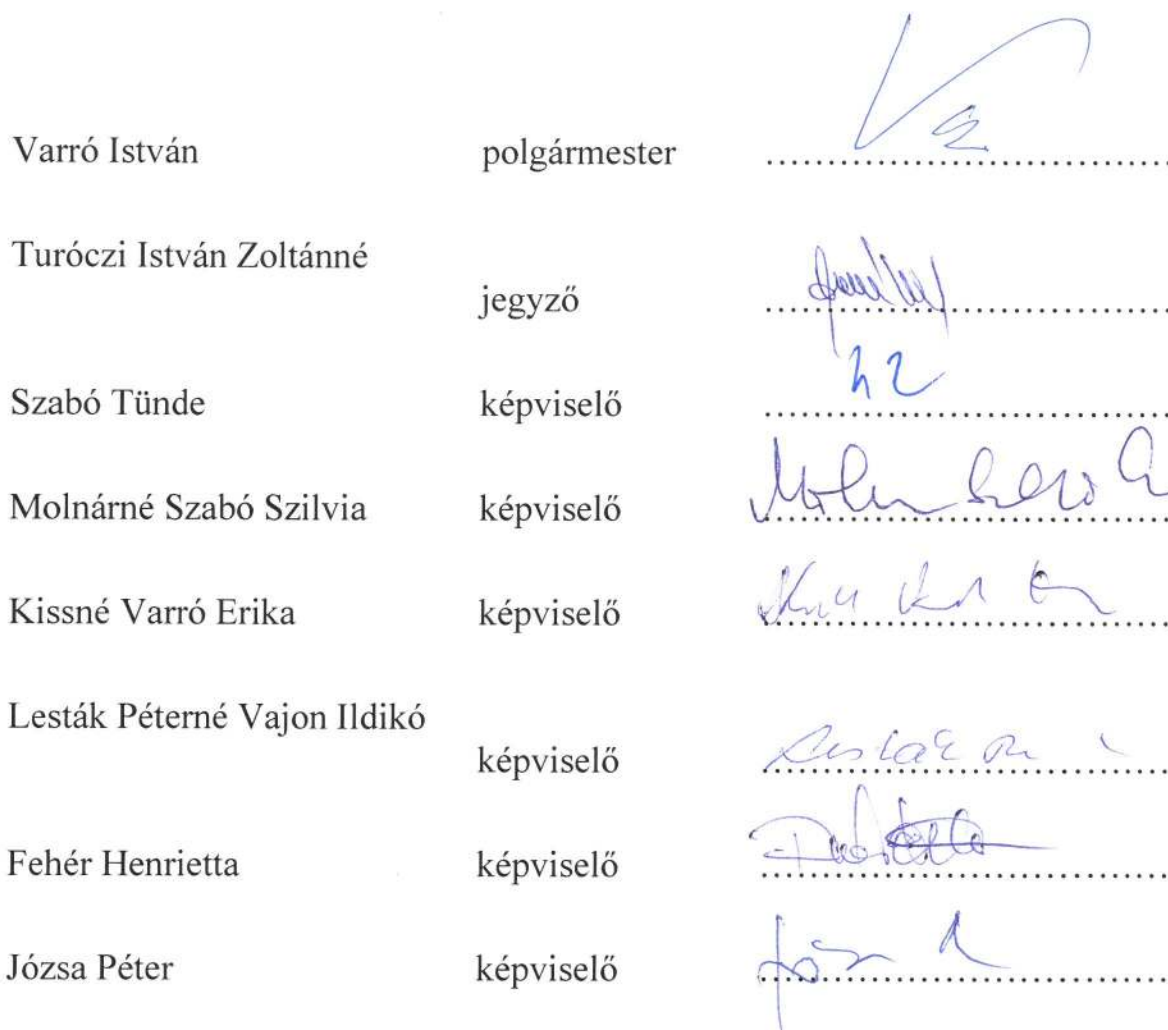 Varró István polgármester ........................................
Turóczi István Zoltánné
jegyző ........................................
Szabó Tünde képviselő ........................................
Molnárné Szabó Szilvia képviselő ........................................
Kissné Varró Erika képviselő ........................................
Lesták Péterné Vajon Ildikó
képviselő ........................................
Fehér Henrietta képviselő ........................................
Józsa Péter képviselő ........................................